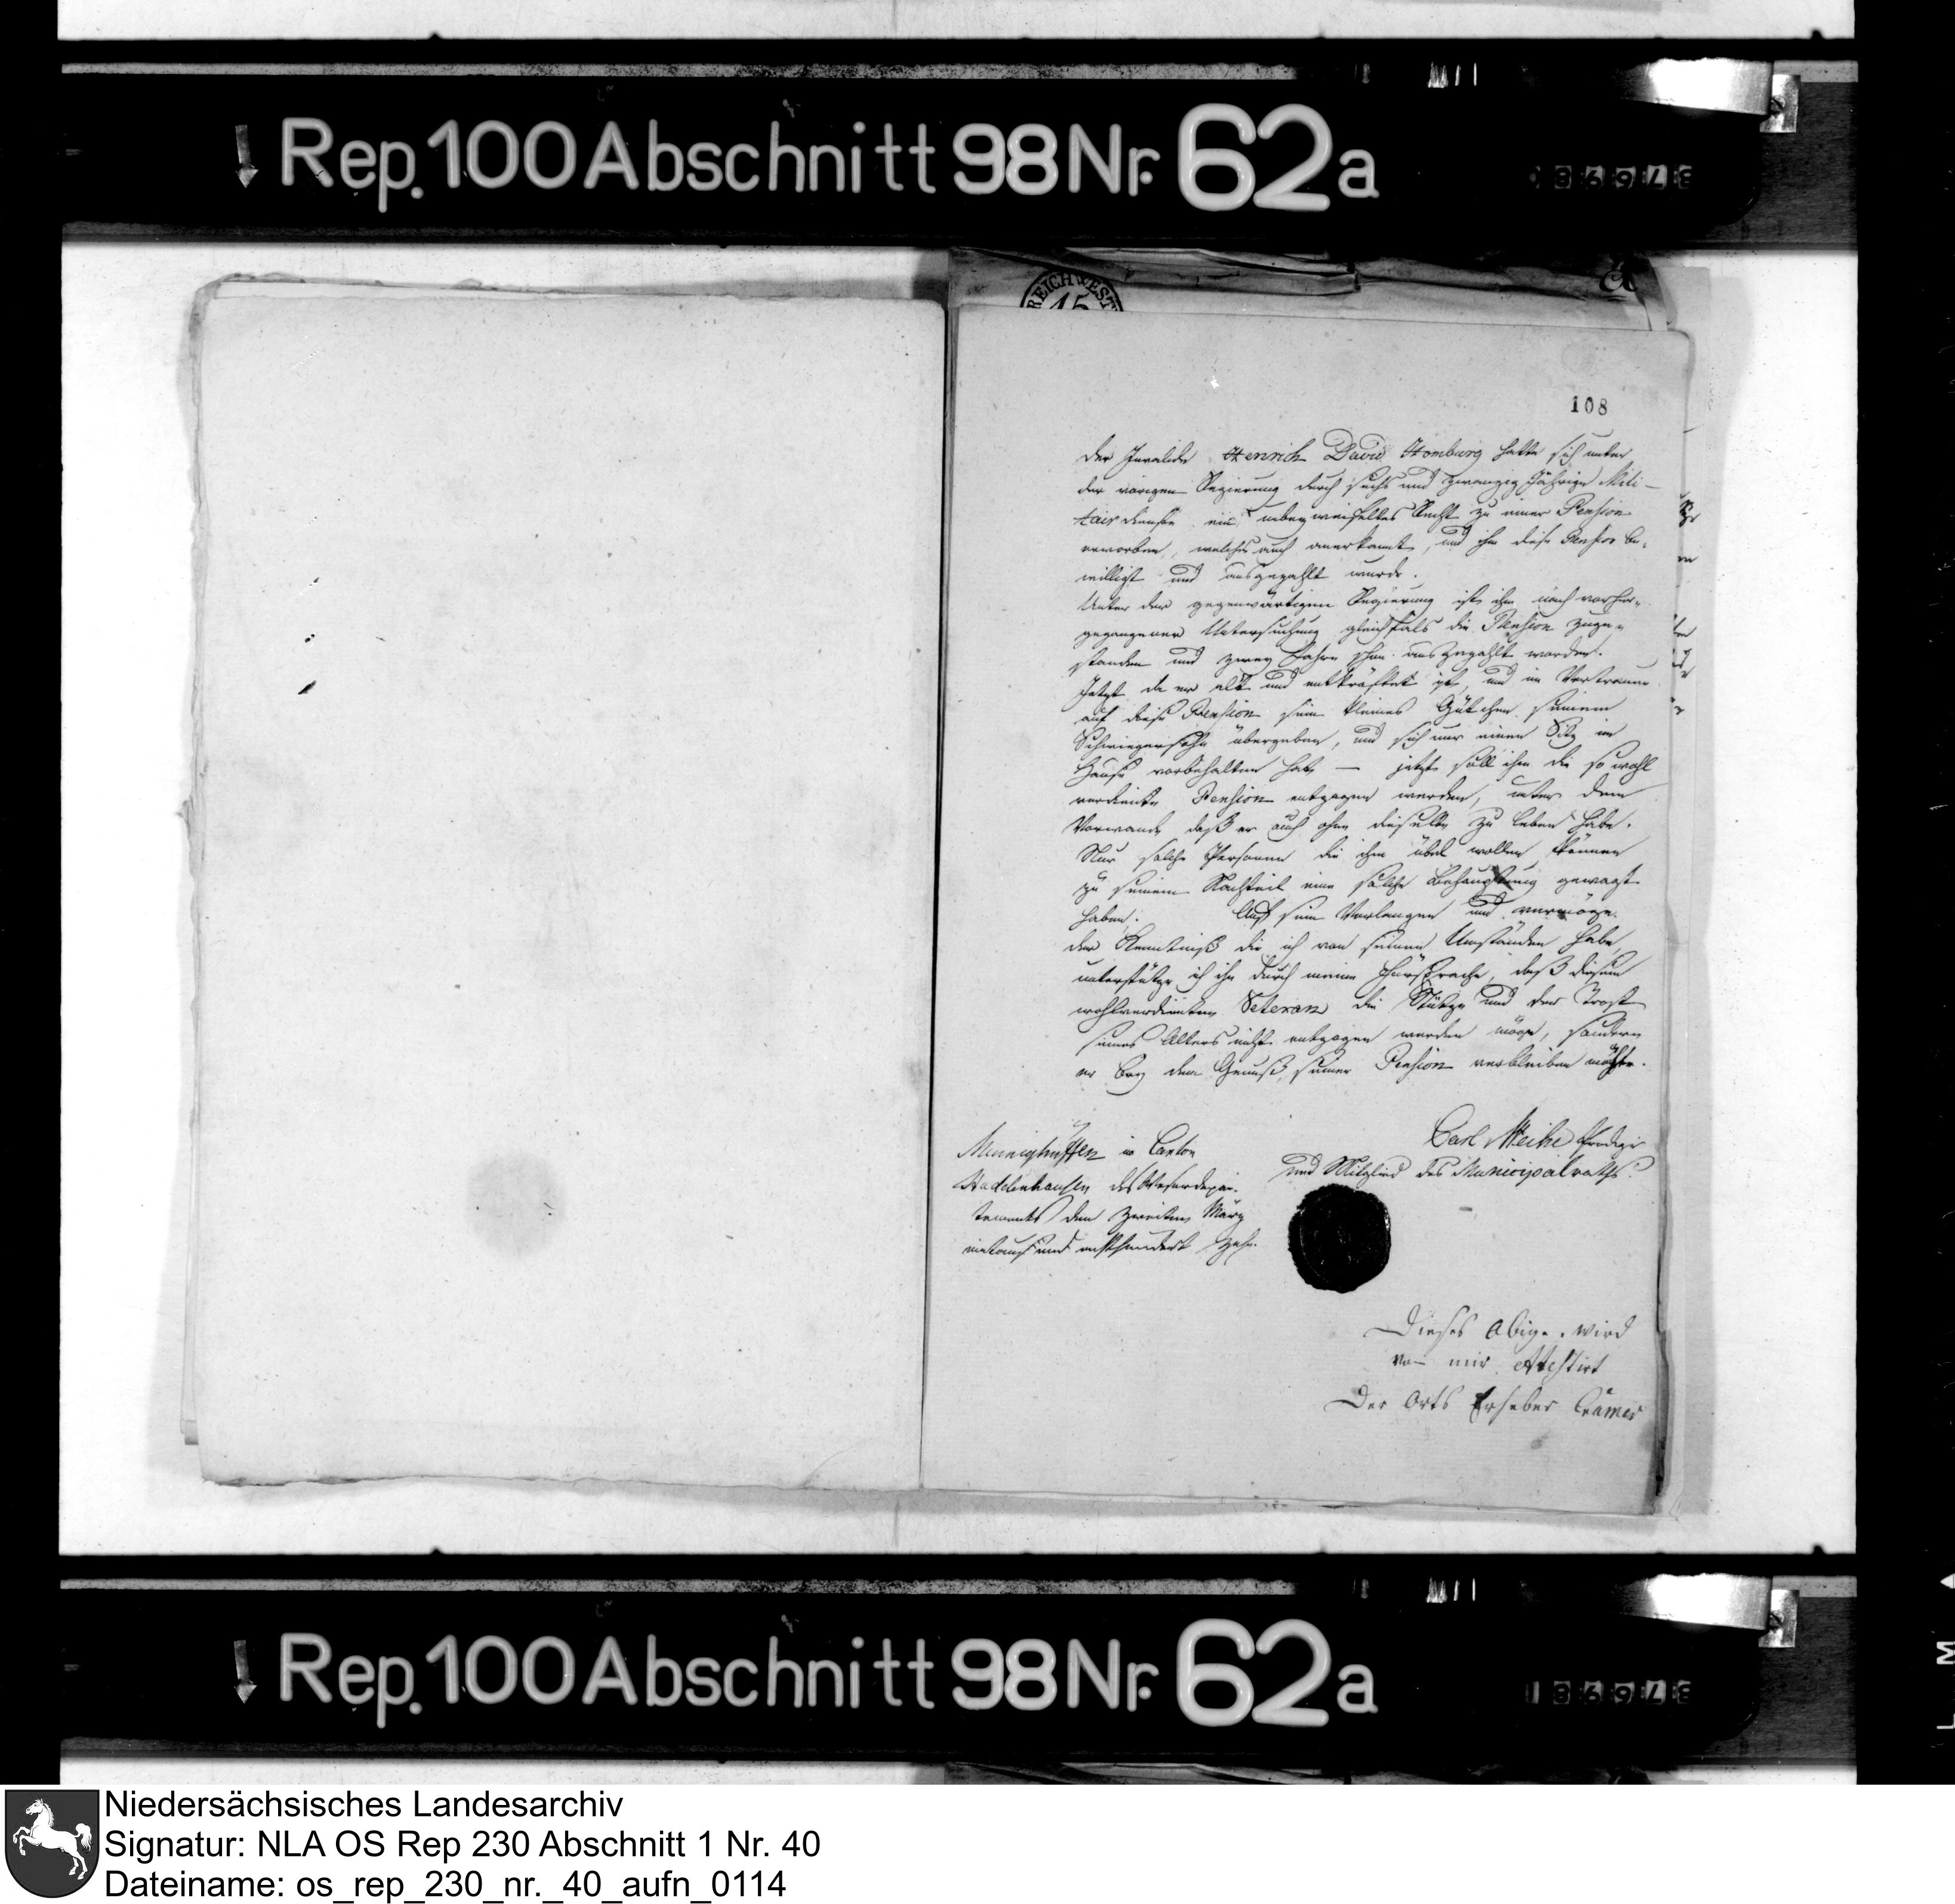 Rep. 100 Abschnitt 98 Nr. 62a
REICH WEST
15
108
Der Invalide Henrich David Homburg hatte sich unter
der vorigen Regierung durch sechs und zwanzig jährige Mili-
tair dienste ein unbezweifeltes Recht zu einer Pension
erworben, welches auch anerkannt, und ihm diese Pension be-
willigt und ausgezahlt wurde.
Unter der gegenwärtigen Regierung ist ihm nach vorher-
gegangener Untersuchung gleichfals die Pension zuge-
standen und zwey Jahre schon ausgezahlt worden.
Jetzt da er alt und entkräftet ist, und im Vertrauen
auf diese Pension sein kleines Gütchen seinem
Schwiegersohn übergeben, und sich nur einen Sitz im
Hause vorbehalten hat — jetzt soll ihm die so wohl
verdiente Pension entzogen werden, unter dem
Vorwande daß er auch ohne dieselbe zu leben habe.
Nur solche Personen die ihm übel wollen können
zu seinem Nachteil eine solche Behauptung gewagt
haben. Auf sein Verlangen und vermöge
der Kenntniß die ich von seinen Umständen habe,
unterstütze ich ihn durch meine Fürsprache, daß diesem
wohlverdienten Veteran die Stütze und der Trost
seines Alters nicht entzogen werden möge, sondern
er bey dem Genuß seiner Pension verbleiben möchte.
Carl Meihe Prediger
und Mitglied des Municipalraths.
Mennighüffen im Canton
des Weserdepar-
tements den zweiten März
eintausend achthundert zehn.
Dieses Obige wird
von mir Attestirt
Der Orts Erheber Crämer
Rep. 100 Abschnitt 98 Nr. 62a
Niedersächsisches Landesarchiv
Signatur: NLA OS Rep 230 Abschnitt 1 Nr. 40
Dateiname: os_rep_230_nr._40_aufn_0114